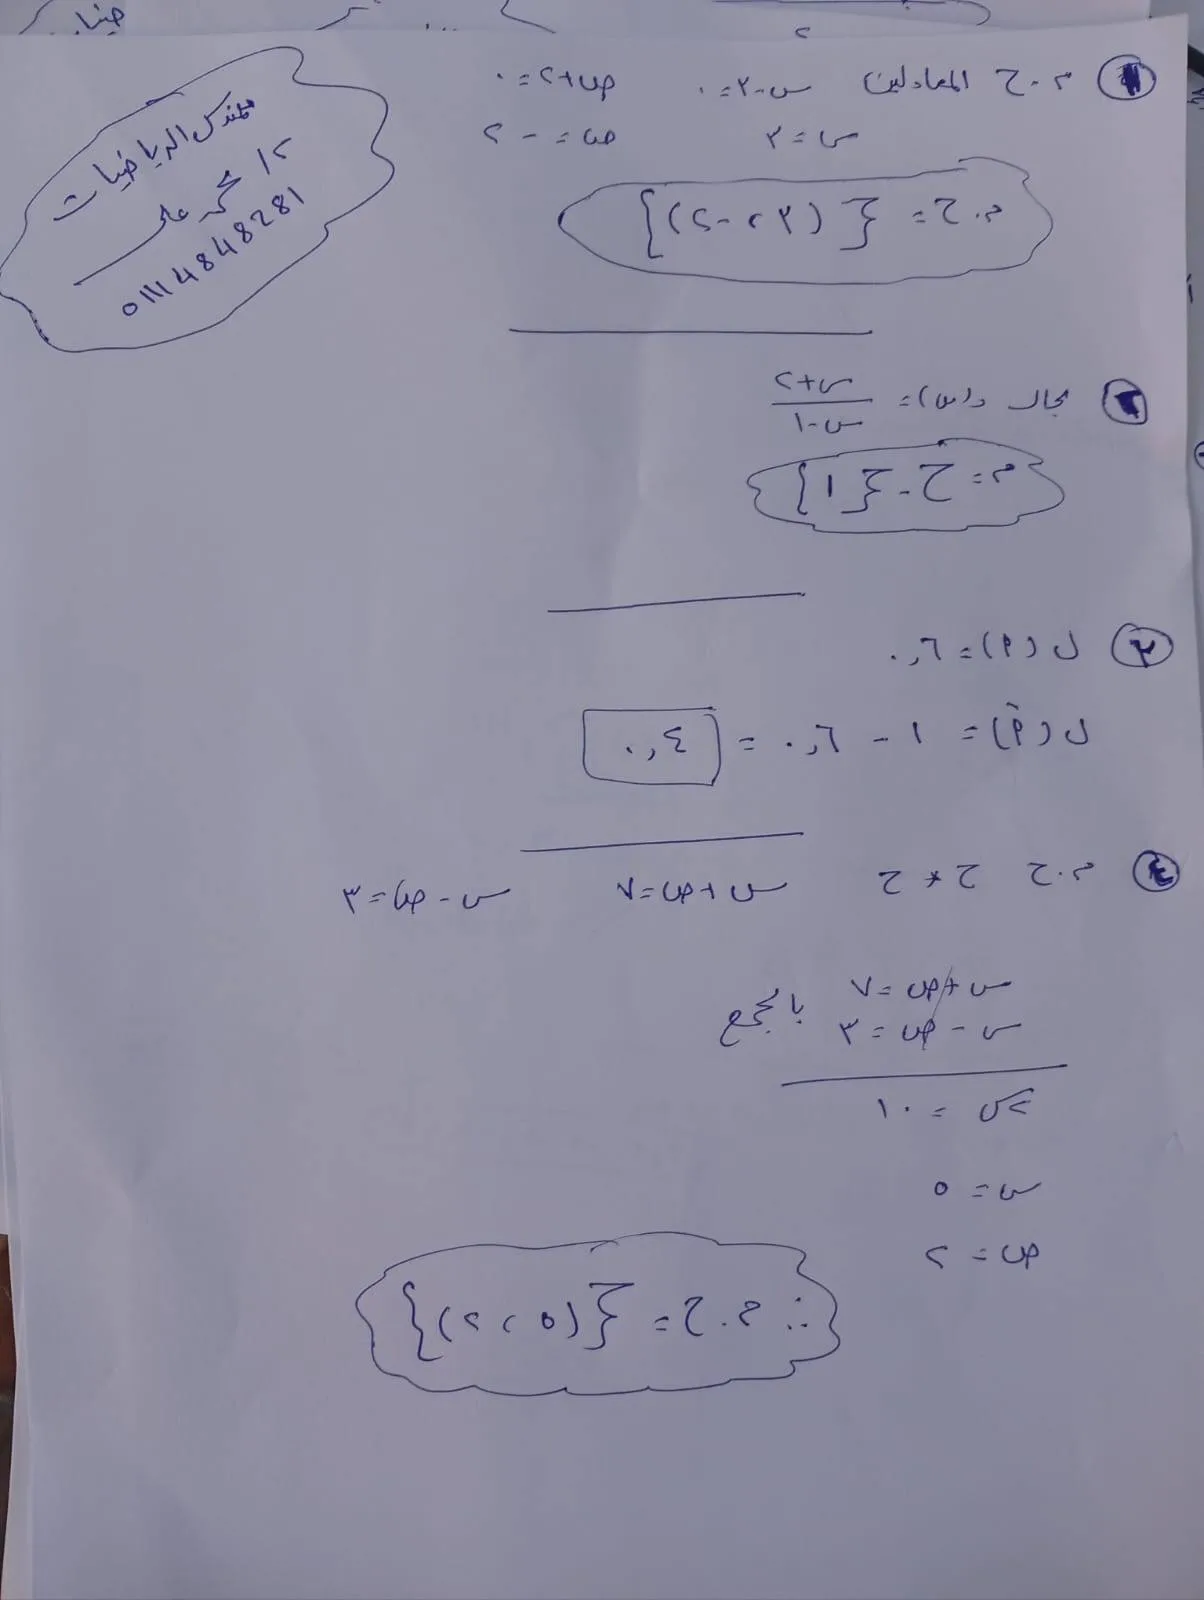 مهندس الرياضيات
م/ محمد على
01114848281
١ م.ح المعادلين س-٣=٠ ص+٢=٠
س=٣ ص=-٢
م.ح={(٣،-٢)}
٢ مجال د(س)=(س+٢)/(س-١)
م=ح-{١}
٣ ل(م)=٠,٦
ل(مَ)=١-٠,٦=٠,٤
٤ م.ح ح*ح س+ص=٧ س-ص=٣
س+ص=٧
س-ص=٣ بالجمع
٢س=١٠
س=٥
ص=٢
∴ م.ح={(٥،٢)}